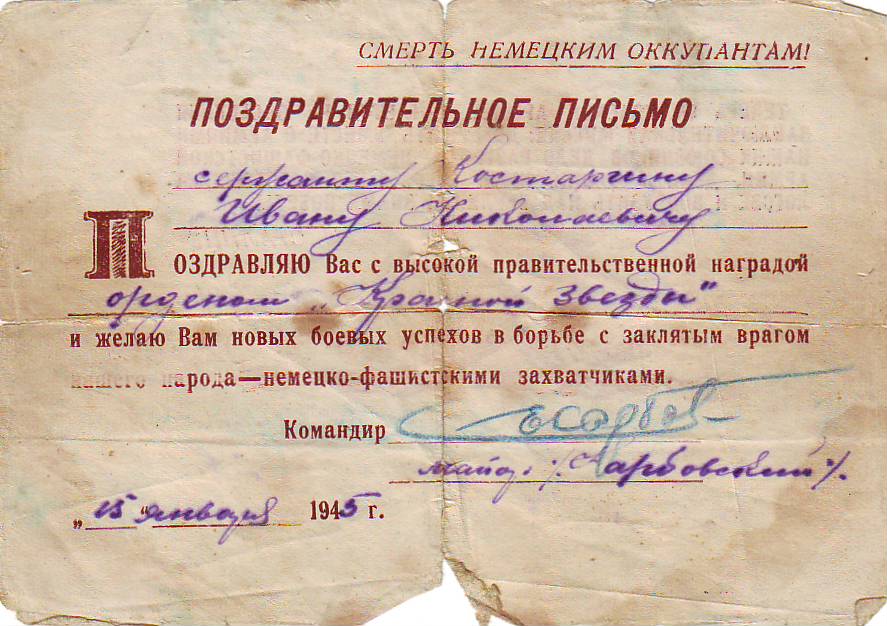 СМЕРТЬ НЕМЕЦКИМ ОККУПАНТАМ!
ПОЗДРАВИТЕЛЬНОЕ ПИСЬМО
сержанту Костаргину
Ивану Николаевичу
ПОЗДРАВЛЯЮ Вас с высокой правительственной наградой
орденом „Красной Звезды"
и желаю Вам новых боевых успехов в борьбе с заклятым врагом
нашего народа—немецко-фашистскими захватчиками.
Командир
майор /
„15" января 1945 г.